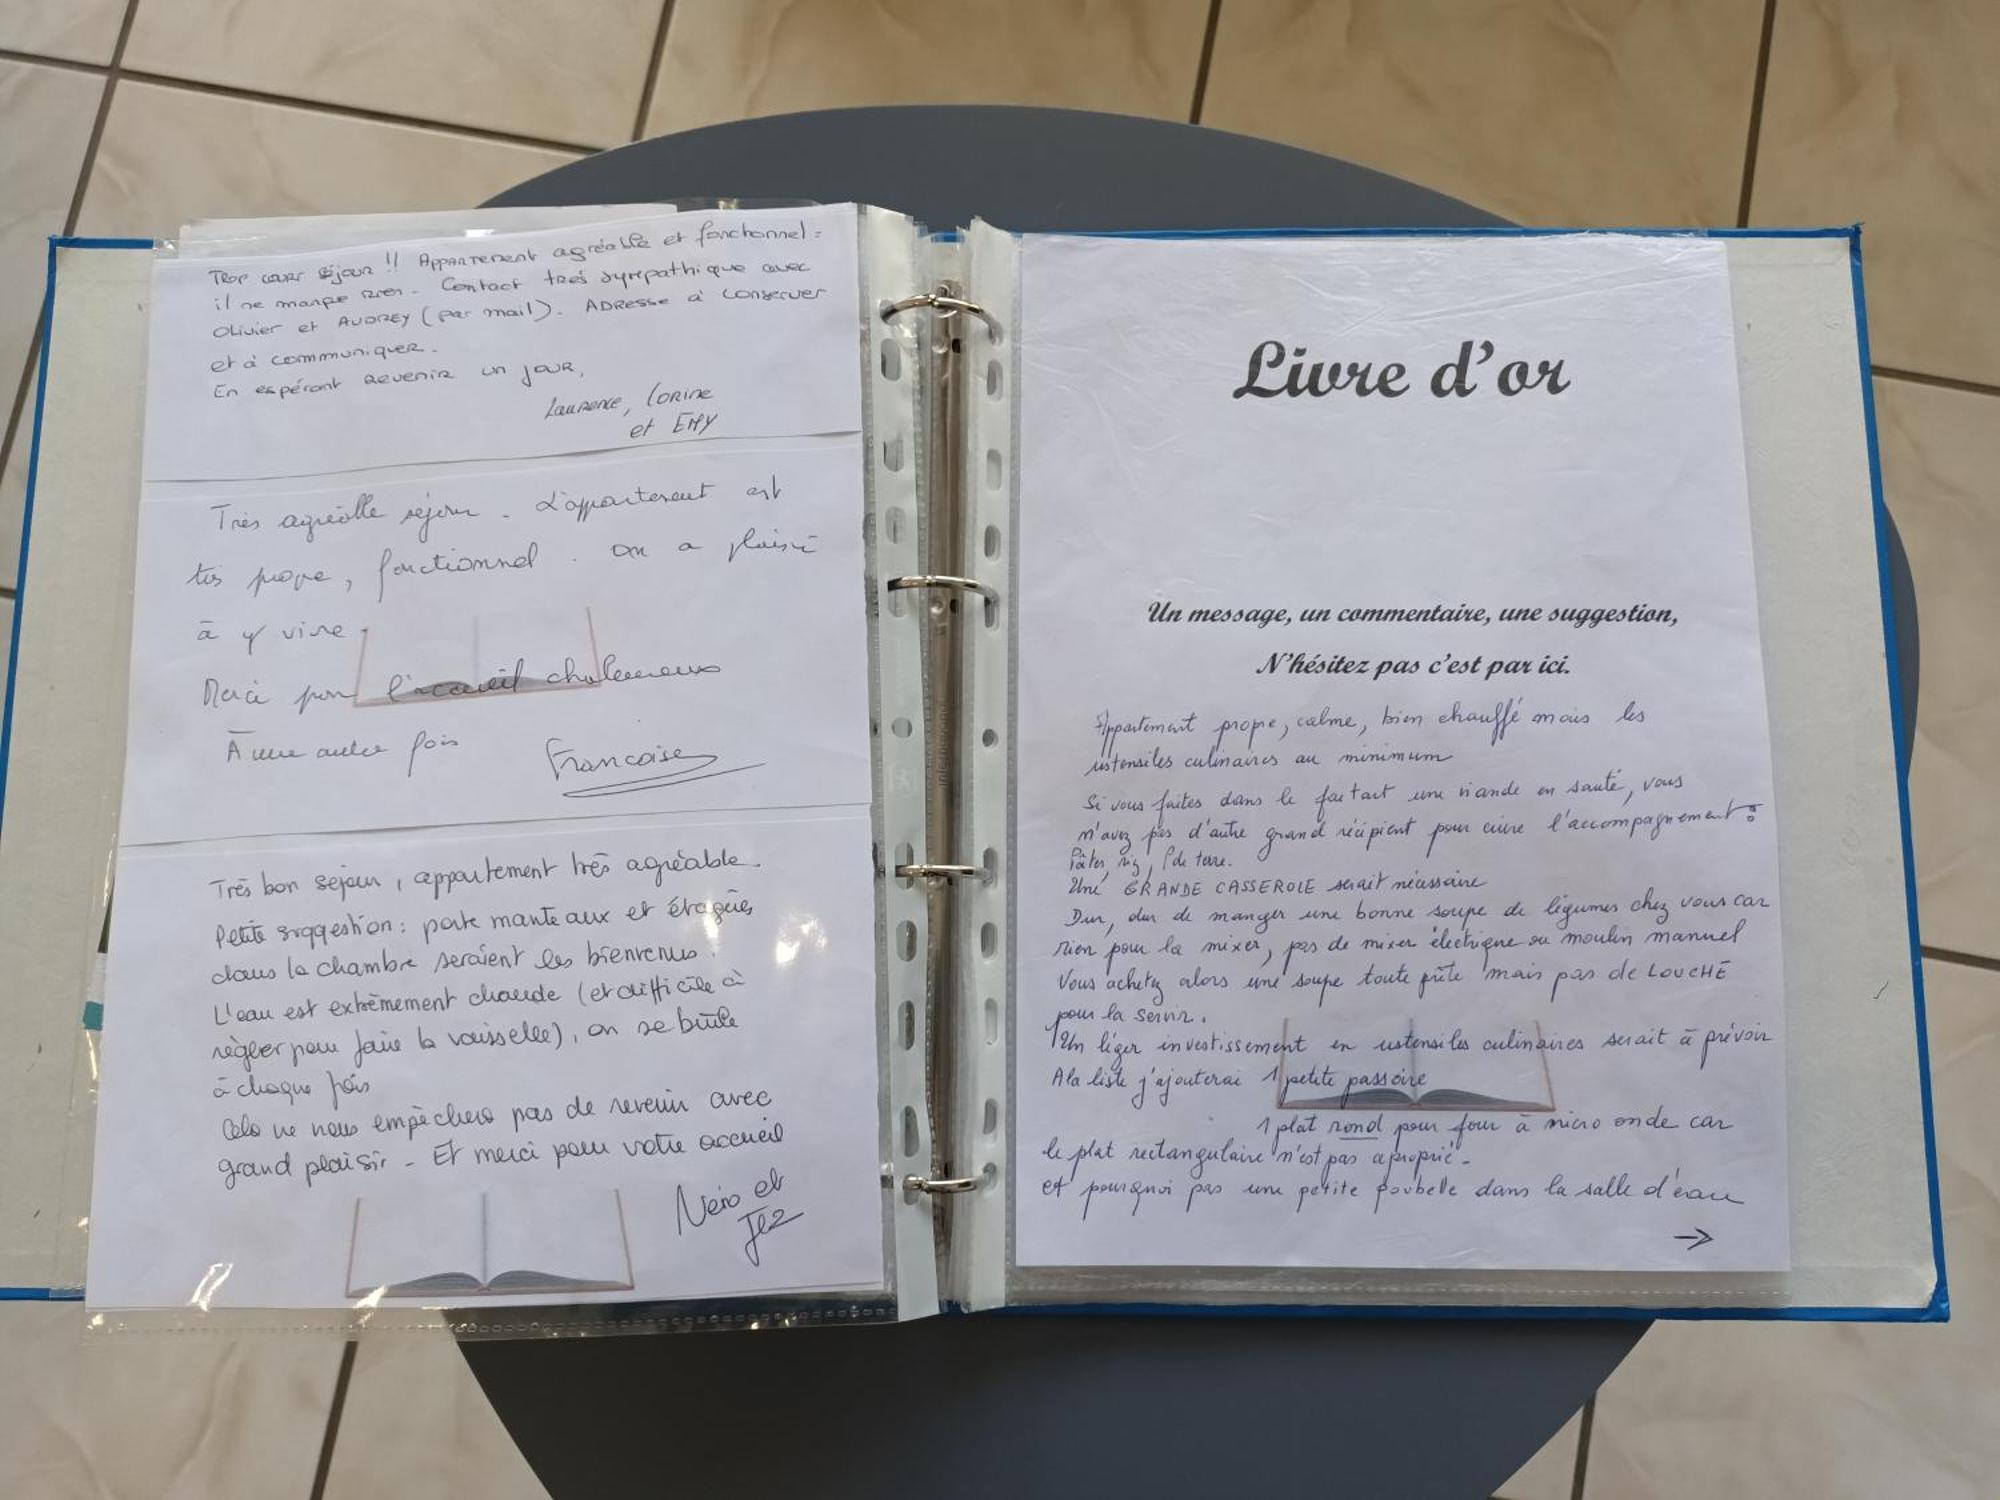 Trop court séjour !! Appartement agréable et fonctionnel :
il ne manque rien. Contact très sympathique avec
Olivier et AUDREY (par mail). ADRESSE à conserver
et à communiquer.
En espérant revenir un jour,
Laurence, Corine
et EMY
Très agréable séjour. L'appartement est
très propre, fonctionnel. On a plaisir
à y vivre.
Merci pour l'accueil chaleureux
À une autre fois
Francoise
Très bon séjour, appartement très agréable.
Petite suggestion : porte manteaux et étagères
dans la chambre seraient les bienvenus.
L'eau est extrèmement chaude (et difficile à
règler pour faire la vaisselle), on se brûle
à chaque fois
Cela ne nous empèchera pas de revenir avec
grand plaisir - Et merci pour votre accueil
et
Livre d'or
Un message, un commentaire, une suggestion,
N'hésitez pas c'est par ici.
Appartement propre, calme, bien chauffé mais les
ustensiles culinaires au minimum
Si vous faites dans le faitout une viande en sauté, vous
n'avez pas d'autre grand récipient pour cuire l'accompagnement :
Pâtes, riz, P de terre.
Une GRANDE CASSEROLE serait nécessaire
Dur, dur de manger une bonne soupe de légumes chez vous car
rien pour la mixer, pas de mixer électrique ou moulin manuel
Vous achetez alors une soupe toute prête mais pas de LOUCHE
pour la servir.
Un léger investissement en ustensiles culinaires serait à prévoir
A la liste j'ajouterai 1 petite passoire
1 plat rond pour four à micro onde car
le plat rectangulaire n'est pas aproprié -
et pourquoi pas une petite poubelle dans la salle d'eau
→